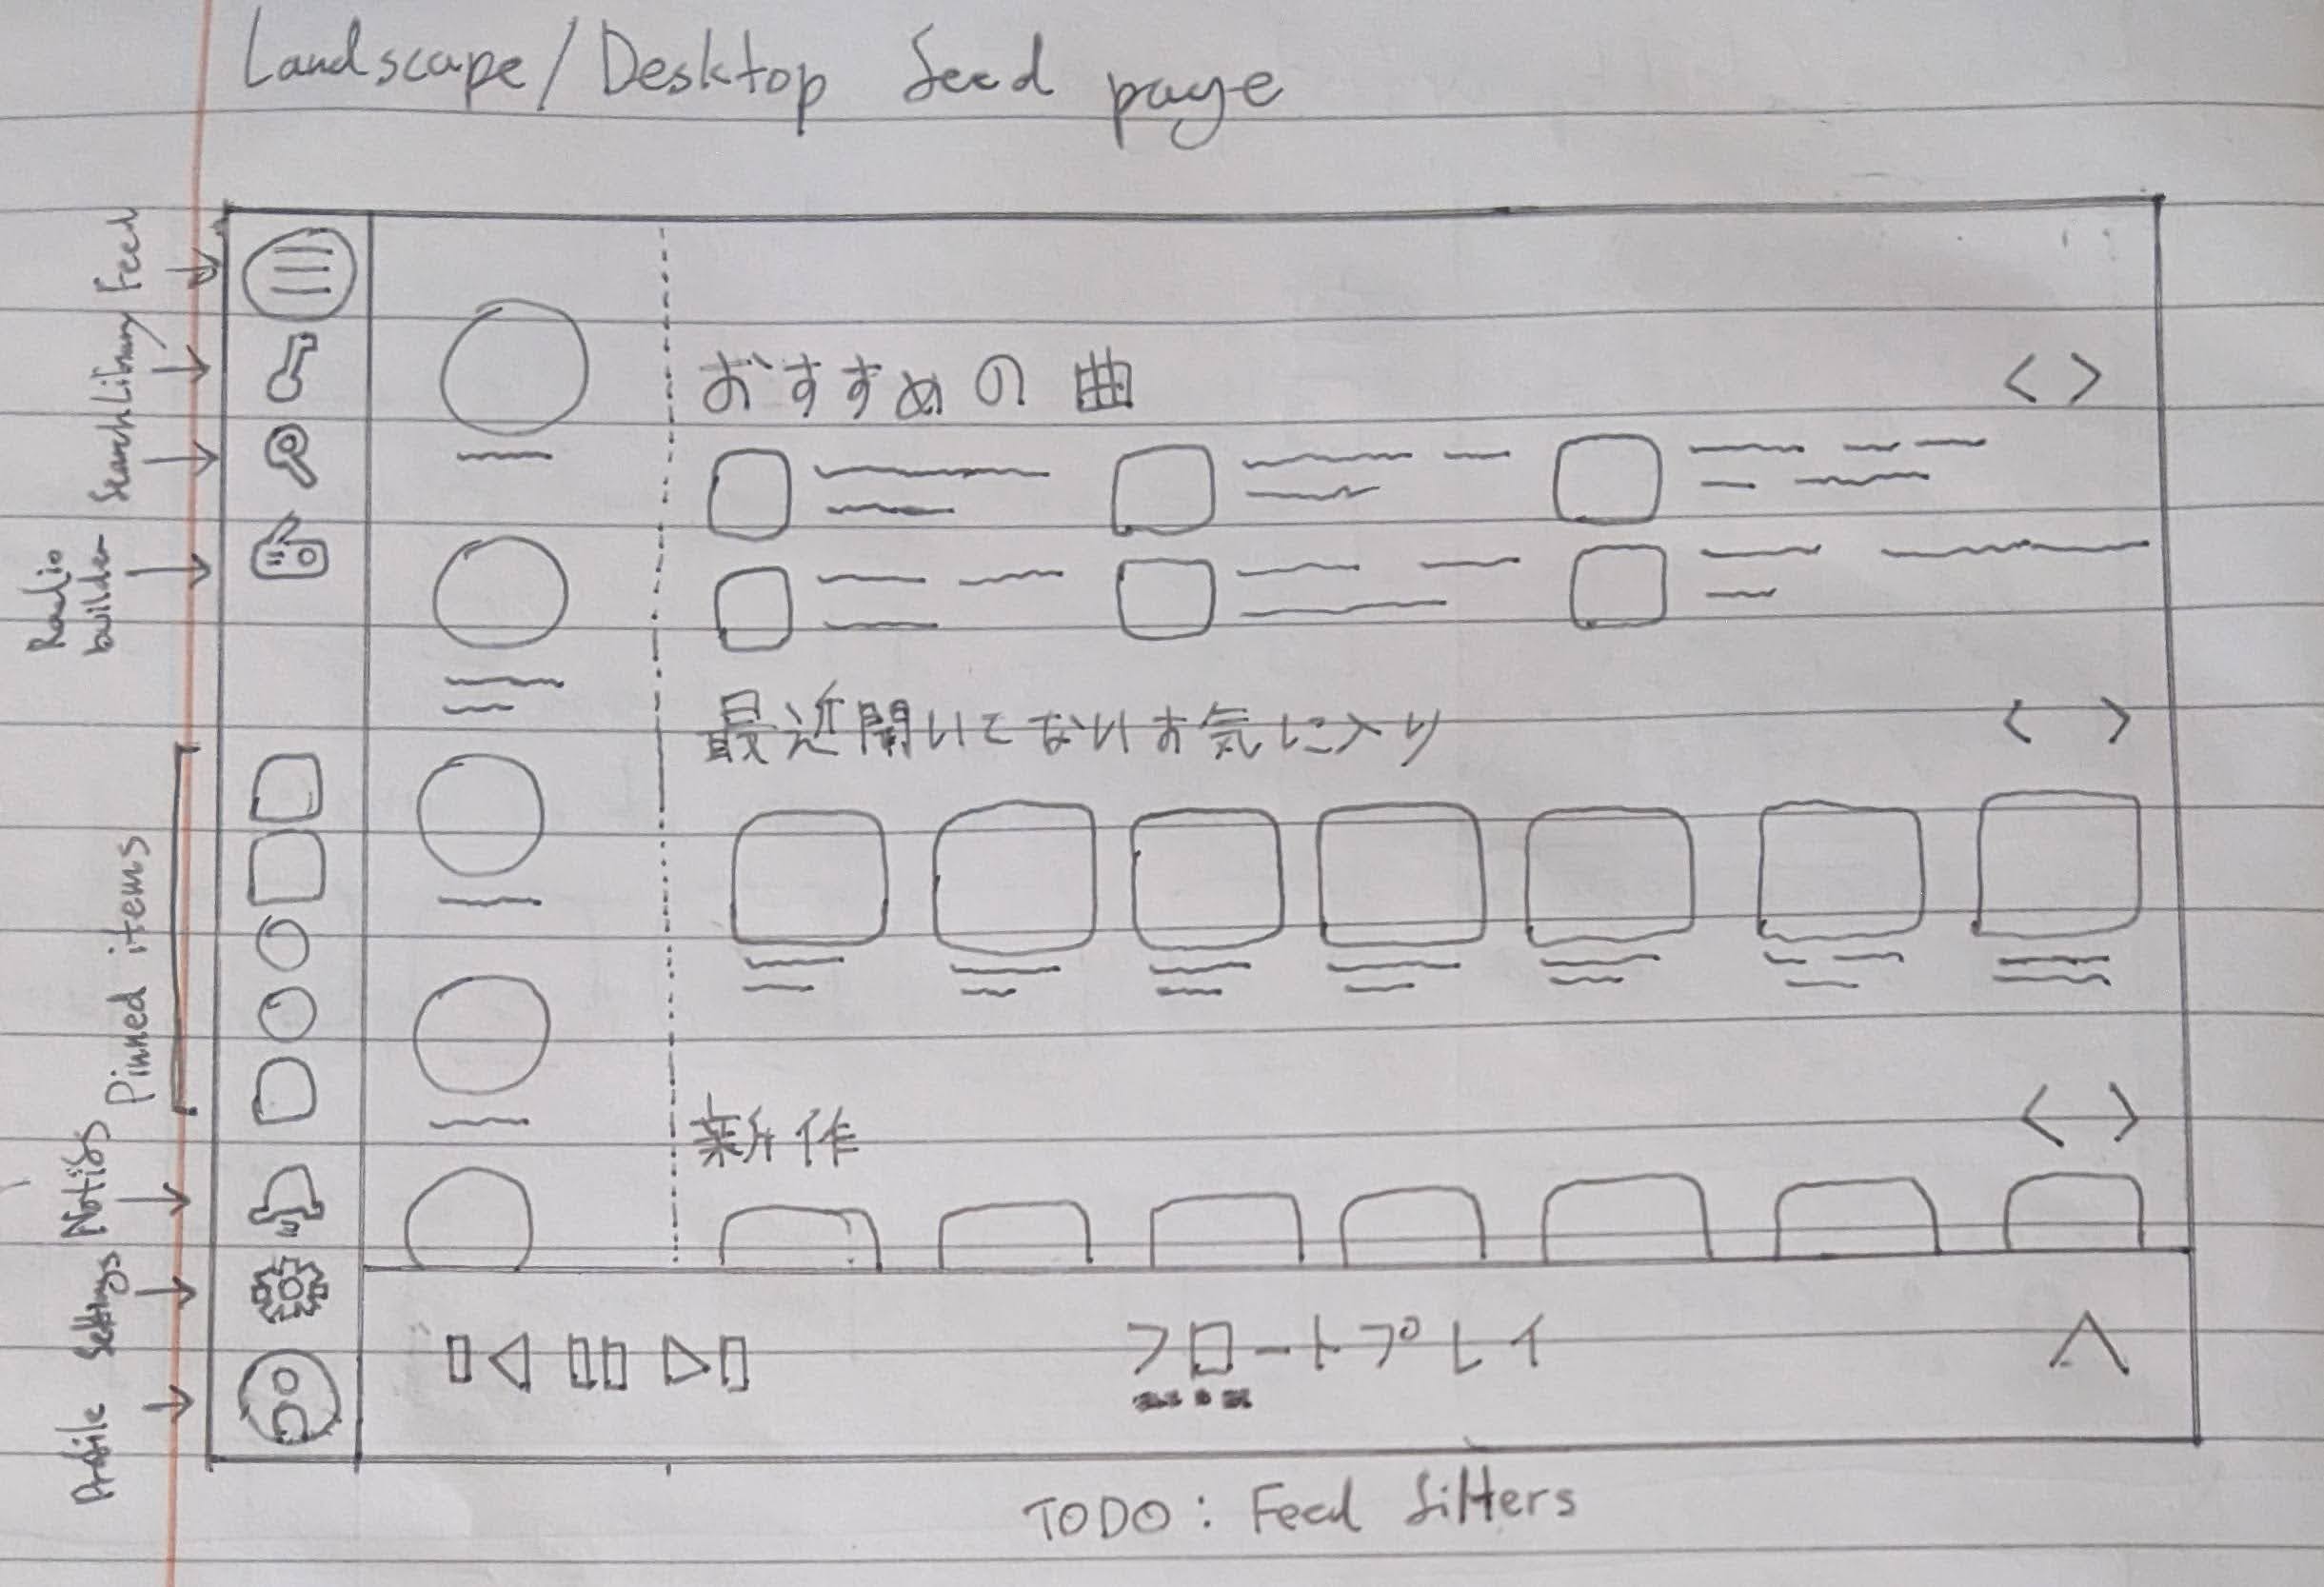 Landscape/Desktop feed page
Feed
Library
Search
Radio
builder
Pinned items
Notifs
Settings
Profile
おすすめの曲
< >
最近開いてないお気に入り
< >
新作
< >
フロートプレイ
TODO: Feed filters